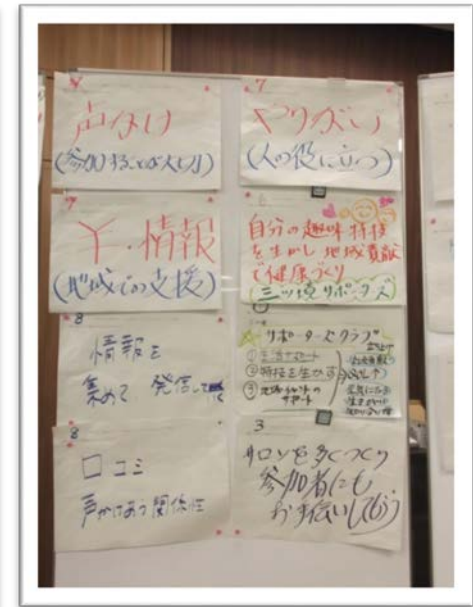 声かけ
(参加することが大切)
7
やりがい
(人の役に立つ)
7
¥・情報
(地域での支援)
自分の趣味特技
を生かし地域貢献
で健康づくり
(三ツ境サポーターズ)
8
情報を
集めて 発信して
サポーターズクラブ
①生活サポート
②特技を生かす
③地域の
サポート
8
口コミ
声かけあう関係性
3
サロンを多くつくり
参加者にも
お手伝いしてもらう